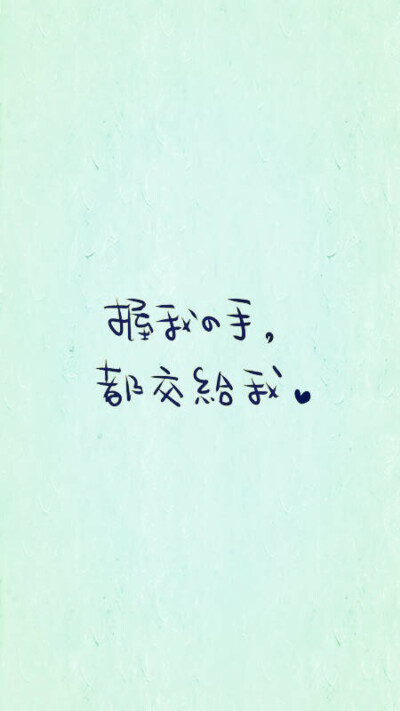 握我の手,
都交給我。